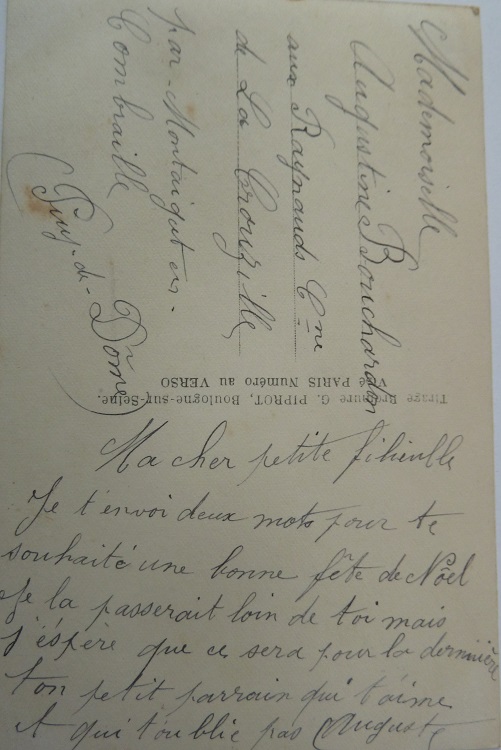 Mademoiselle
Augustine Bouchardon
aux Raynauds Cne
de La Crouzille
par Montaigut en
Combraille
(Puy-de-Dôme)
Tirage Bromure G. PIPROT, Boulogne-sur-Seine.
PARIS Numéro au VERSO
Ma cher petite filieulle
Je t'envoi deux mots pour te
souhaité une bonne fête de Nôel
Je la passerait loin de toi mais
j'éspère que ce sera pour la dernnière
ton petit parrain qui t'aime
et qui t'oublie pas Auguste